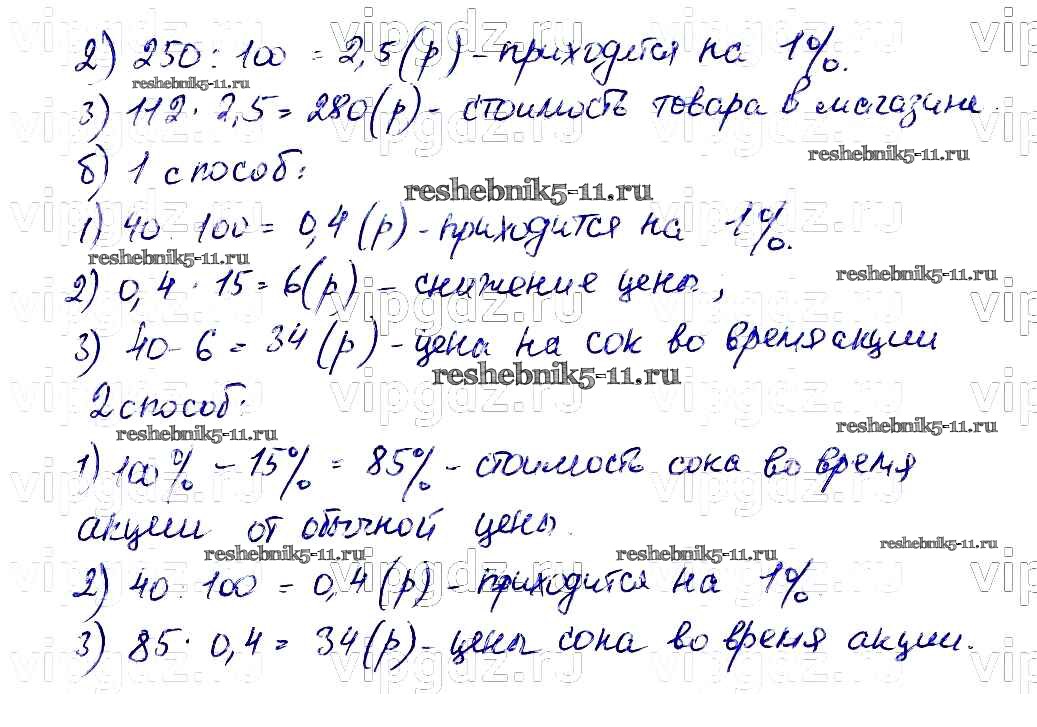 2) 250 : 100 = 2,5 (р) - приходится на 1%.
3) 112 · 2,5 = 280 (р) - стоимость товара в магазине.
б) 1 способ:
1) 40 : 100 = 0,4 (р) - приходится на 1%.
2) 0,4 · 15 = 6 (р) - снижение цены,
3) 40 - 6 = 34 (р) - цена на сок во время акции
2 способ:
1) 100% - 15% = 85% - стоимость сока во время
акции от обычной цены.
2) 40 : 100 = 0,4 (р) - приходится на 1%
3) 85 · 0,4 = 34 (р) - цена сока во время акции.
reshebnik5-11.ru
reshebnik5-11.ru
reshebnik5-11.ru
reshebnik5-11.ru
reshebnik5-11.ru
reshebnik5-11.ru
reshebnik5-11.ru
reshebnik5-11.ru
reshebnik5-11.ru
reshebnik5-11.ru
reshebnik5-11.ru
vipgdz.ru